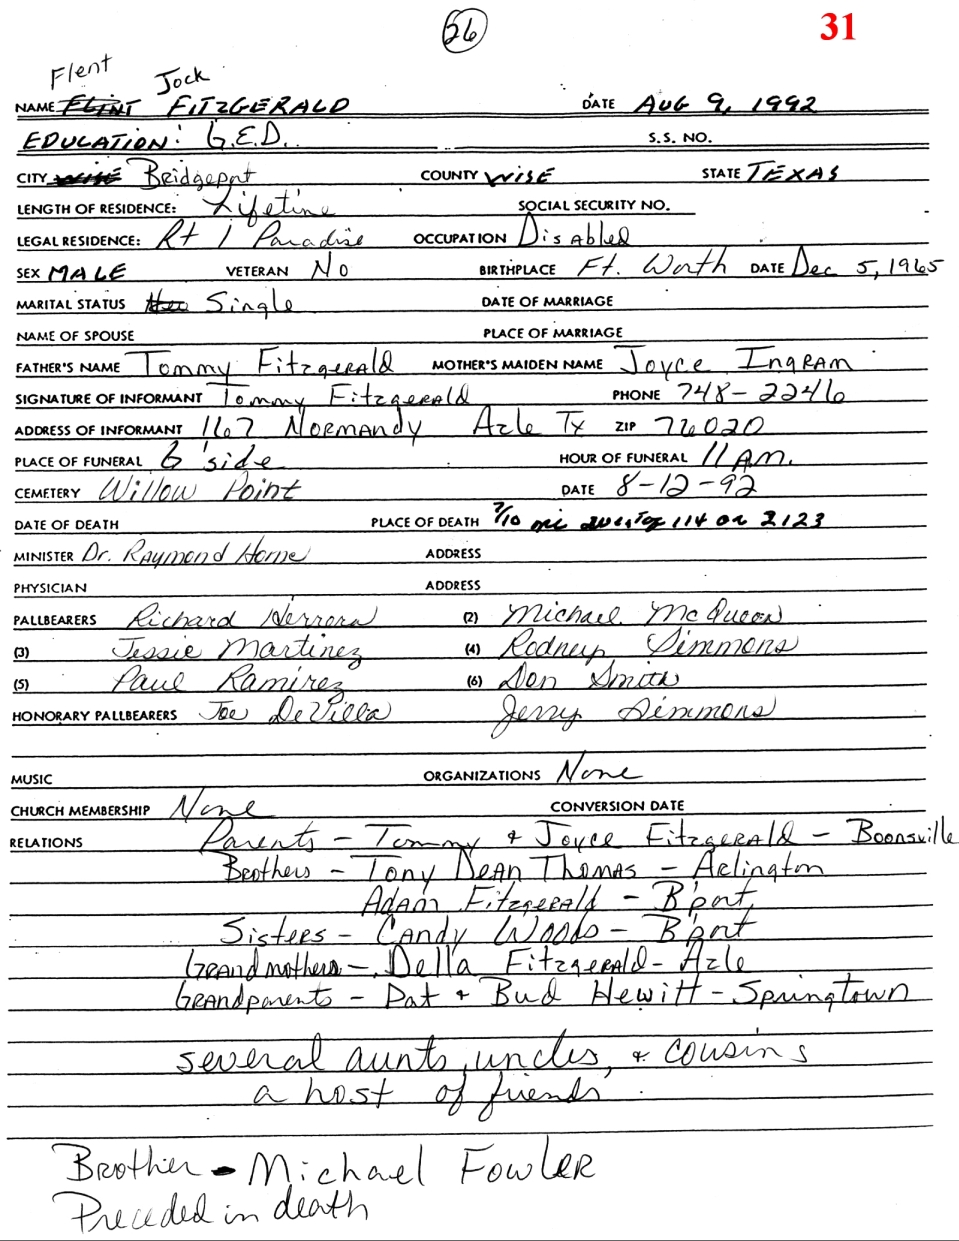 26
31
Flent Jock
NAME FLINT FITZGERALD DATE AUG 9, 1992
EDUCATION: G.E.D. S.S. NO.
CITY WISE Bridgeport COUNTY WISE STATE TEXAS
LENGTH OF RESIDENCE: Lifetime SOCIAL SECURITY NO.
LEGAL RESIDENCE: Rt 1 Paradise OCCUPATION Disabled
SEX MALE VETERAN No BIRTHPLACE Ft. Worth DATE Dec 5, 1965
MARITAL STATUS Single DATE OF MARRIAGE
NAME OF SPOUSE PLACE OF MARRIAGE
FATHER'S NAME Tommy Fitzgerald MOTHER'S MAIDEN NAME Joyce Ingram
SIGNATURE OF INFORMANT Tommy Fitzgerald PHONE 748-2246
ADDRESS OF INFORMANT 1167 Normandy Azle Tx ZIP 76020
PLACE OF FUNERAL G'side HOUR OF FUNERAL 11 AM.
CEMETERY Willow Point DATE 8-12-92
DATE OF DEATH PLACE OF DEATH 7/10 mi west of 114 on 2123
MINISTER Dr. Raymond Horne ADDRESS
PHYSICIAN ADDRESS
PALLBEARERS Richard Herrera (2) Michael McQueen
(3) Jessie Martinez (4) Rodney Simmons
(5) Paul Ramirez (6) Don Smith
HONORARY PALLBEARERS Joe DeVilla Jerry Simmons
MUSIC ORGANIZATIONS None
CHURCH MEMBERSHIP None CONVERSION DATE
RELATIONS Parents - Tommy & Joyce Fitzgerald - Boonsville
Brothers - Tony Dean Thomas - Arlington
Adam Fitzgerald - B'port
Sisters - Candy Woods - B'port
Grandmothers - Della Fitzgerald - Azle
Grandparents - Pat + Bud Hewitt - Springtown
several aunts, uncles, & cousins
a host of friends.
Brother - Michael Fowler
Preceded in death